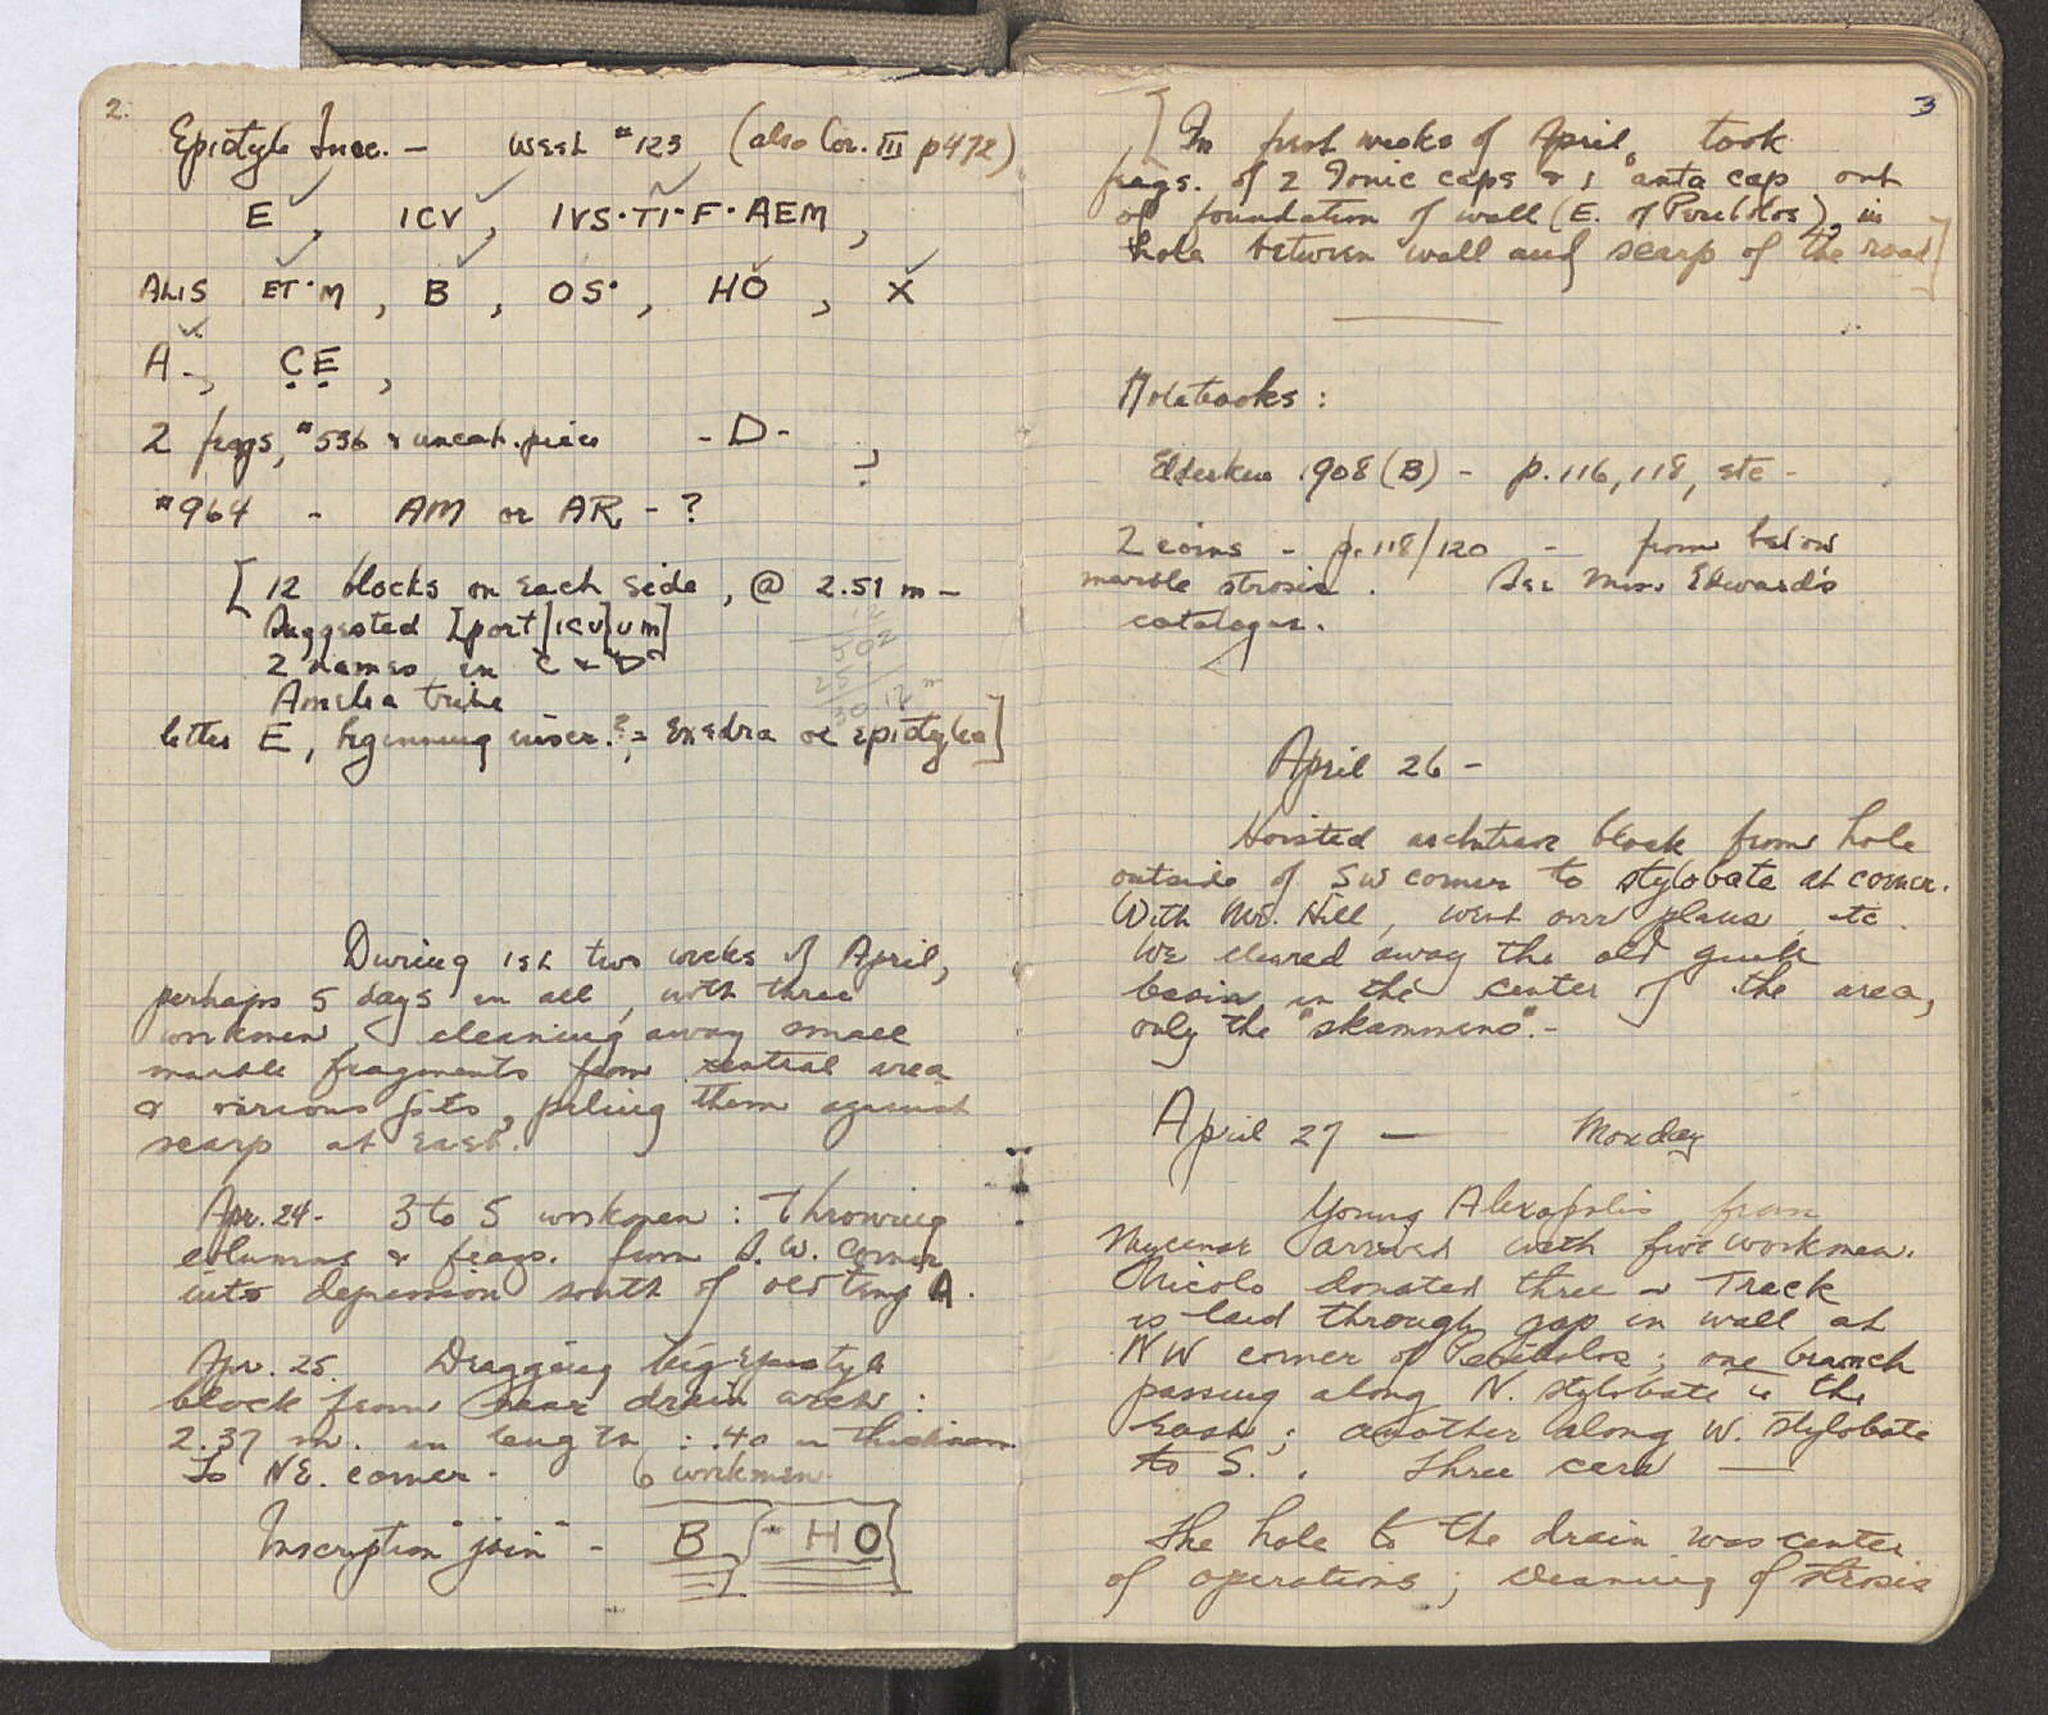 2.
Epistyle Insc. - West #123 (also Cor. III p472)
E, ICV, IVS·TI·F·AEM,
ALIS ET·M, B, OS·, HO, X
A-, CE,
2 frags, #536 & uncat. piece -D-
#964 - AM or AR - ?
[12 blocks on each side, @ 2.51 m -
Suggested [port]ICU[um]
2 names in "C & D"
Amelia tribe
letter E, beginning inscr.?, = Exedra or epistylea]
12
502
251
30.12 m
During 1st two weeks of April,
perhaps 5 days in all, with three
workmen, cleaning away small
marble fragments from central area
& various pits, piling them against
scarp at East.
Apr. 24 - 3 to 5 workmen : Throwing
columns & frags. from S.W. Corner
into depression south of old temp A.
Apr. 25. Dragging big epistyle
block from near drain arch :
2.37 m. in length : .40 in thickness
to NE. corner - 6 workmen
Inscription "join" - B - HO
3
[In first weeks of April, took
frags. of 2 Ionic caps & 1 "anta cap out
of foundation of wall (E. of Peribolos), in
hole between wall and scarp of the road]
Notebooks :
Elderkin 1908 (B) - p. 116, 118, etc -
2 coins - p. 118/120 - from below
marble strosis. See Miss Edward's
catalogue.
April 26 -
Hoisted architrave block from hole
outside of SW corner to stylobate at corner.
With Mr. Hill, went over plans, etc.
We cleared away the old
basin in the center of the area,
only the "skammeno". -
April 27 — Monday
Young Alexopolis from
Mycenae arrived with five workmen.
Nicolo donated three - Track
is laid through gap in wall at
NW corner of Peribolos ; one branch
passing along N. stylobate to the
East ; another along W. stylobate
to S. . Three cars —
The hole to the drain was center
of operations ; cleaning of strosis